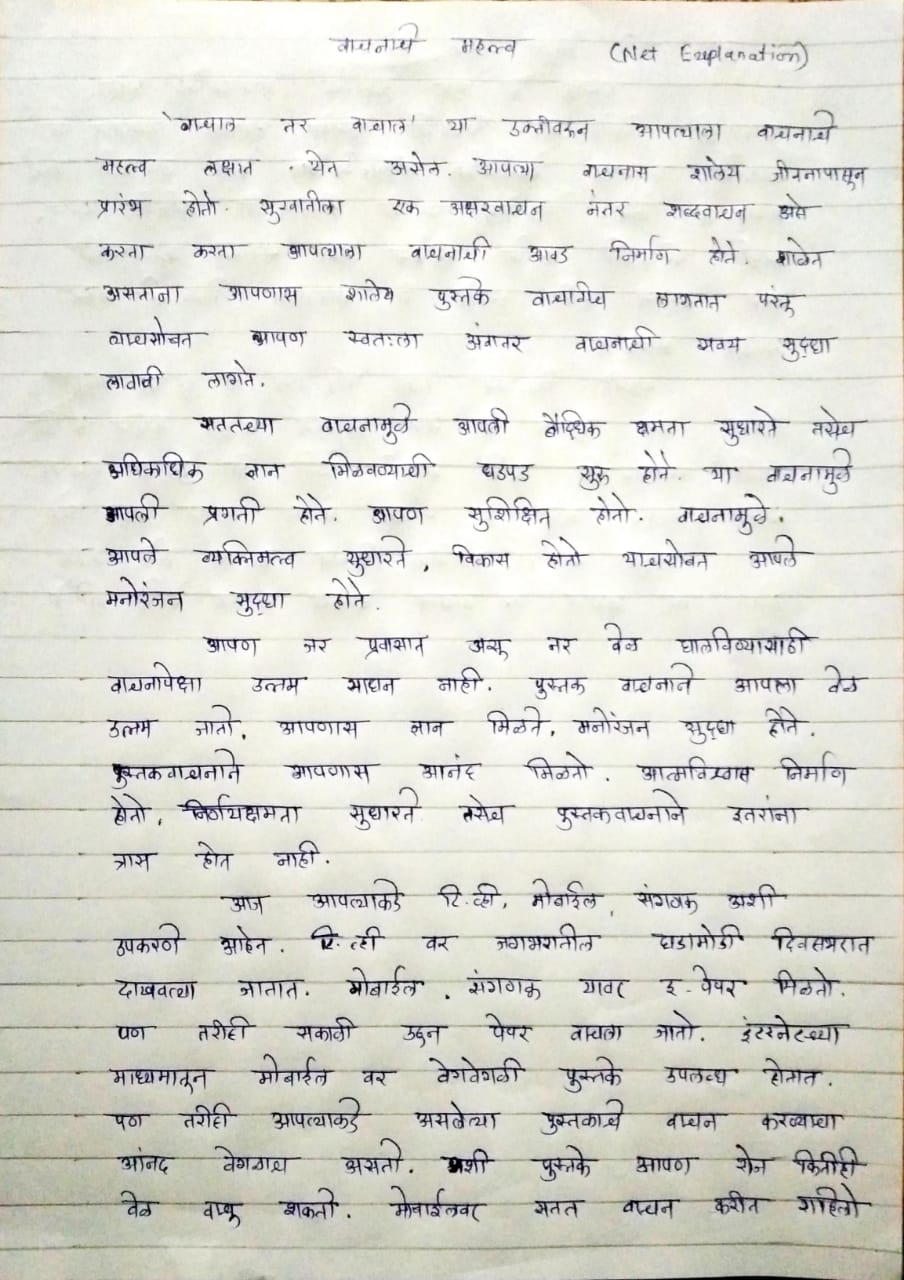 वाचनाचे महत्त्व (Net Explanation)
'वाचाल तर वाचाल' या उक्तीवरून आपल्याला वाचनाचे
महत्त्व लक्षात येत असेल. आपल्या वाचनास शालेय जीवनापासून
प्रारंभ होतो. सुरवातीला एक अक्षरवाचन नंतर शब्दवाचन असे
करता करता आपल्याला वाचनाची आवड निर्माण होते. शाळेत
असताना आपणास शालेय पुस्तके वाचावीच लागतात परंतु
त्याचसोबत आपण स्वतःला अवांतर वाचनाची सवय सुद्धा
लावावी लागते.
सततच्या वाचनामुळे आपली बौद्धिक क्षमता सुधारते तसेच
अधिकाधिक ज्ञान मिळवण्याची धडपड सुरू होते. या वाचनामुळे
आपली प्रगती होते. आपण सुशिक्षित होतो. वाचनामुळे.
आपले व्यक्तिमत्व सुधारते, विकास होतो याचसोबत आपले
मनोरंजन सुद्धा होते.
आपण जर प्रवासात असू तर वेळ घालविण्यासाठी
वाचनापेक्षा उत्तम साधन नाही. पुस्तक वाचनाने आपला वेळ
उत्तम जातो, आपणास ज्ञान मिळते, मनोरंजन सुद्धा होते.
पुस्तकवाचनाने आपणास आनंद मिळतो. आत्मविश्वास निर्माण
होतो, निर्णयक्षमता सुधारते तसेच पुस्तकवाचनाने इतरांना
त्रास होत नाही.
आज आपल्याकडे टि.व्ही, मोबाईल, संगणक अशी
उपकरणे आहेत. टि.व्ही वर जगभरातील घडामोडी दिवसभरात
दाखवल्या जातात. मोबाईल, संगणक यावर इ-पेपर मिळतो.
पण तरीही सकाळी उठून पेपर वाचला जातो. इंटरनेटच्या
माध्यमातून मोबाईल वर वेगवेगळी पुस्तके उपलब्ध होतात.
पण तरीही आपल्याकडे असलेल्या पुस्तकाचे वाचन करण्याचा
आंनद वेगळाच असतो. अशी पुस्तके आपण रोज कितीही
वेळ वाचू शकतो. मोबाईलवर सतत वाचन करीत राहिलो